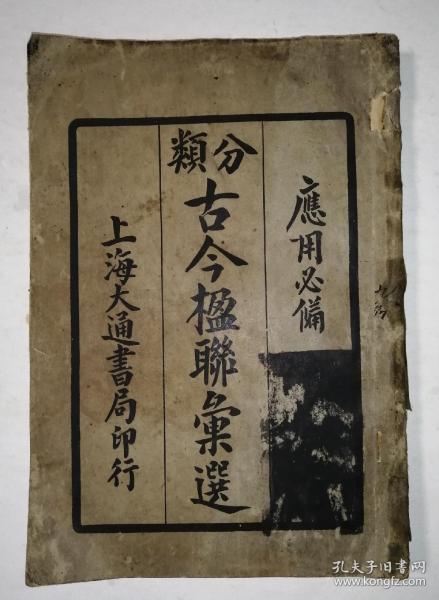 應用必備
分類
古今楹聯彙選
上海大通書局印行
孔夫子旧书网
www.kongfz.com